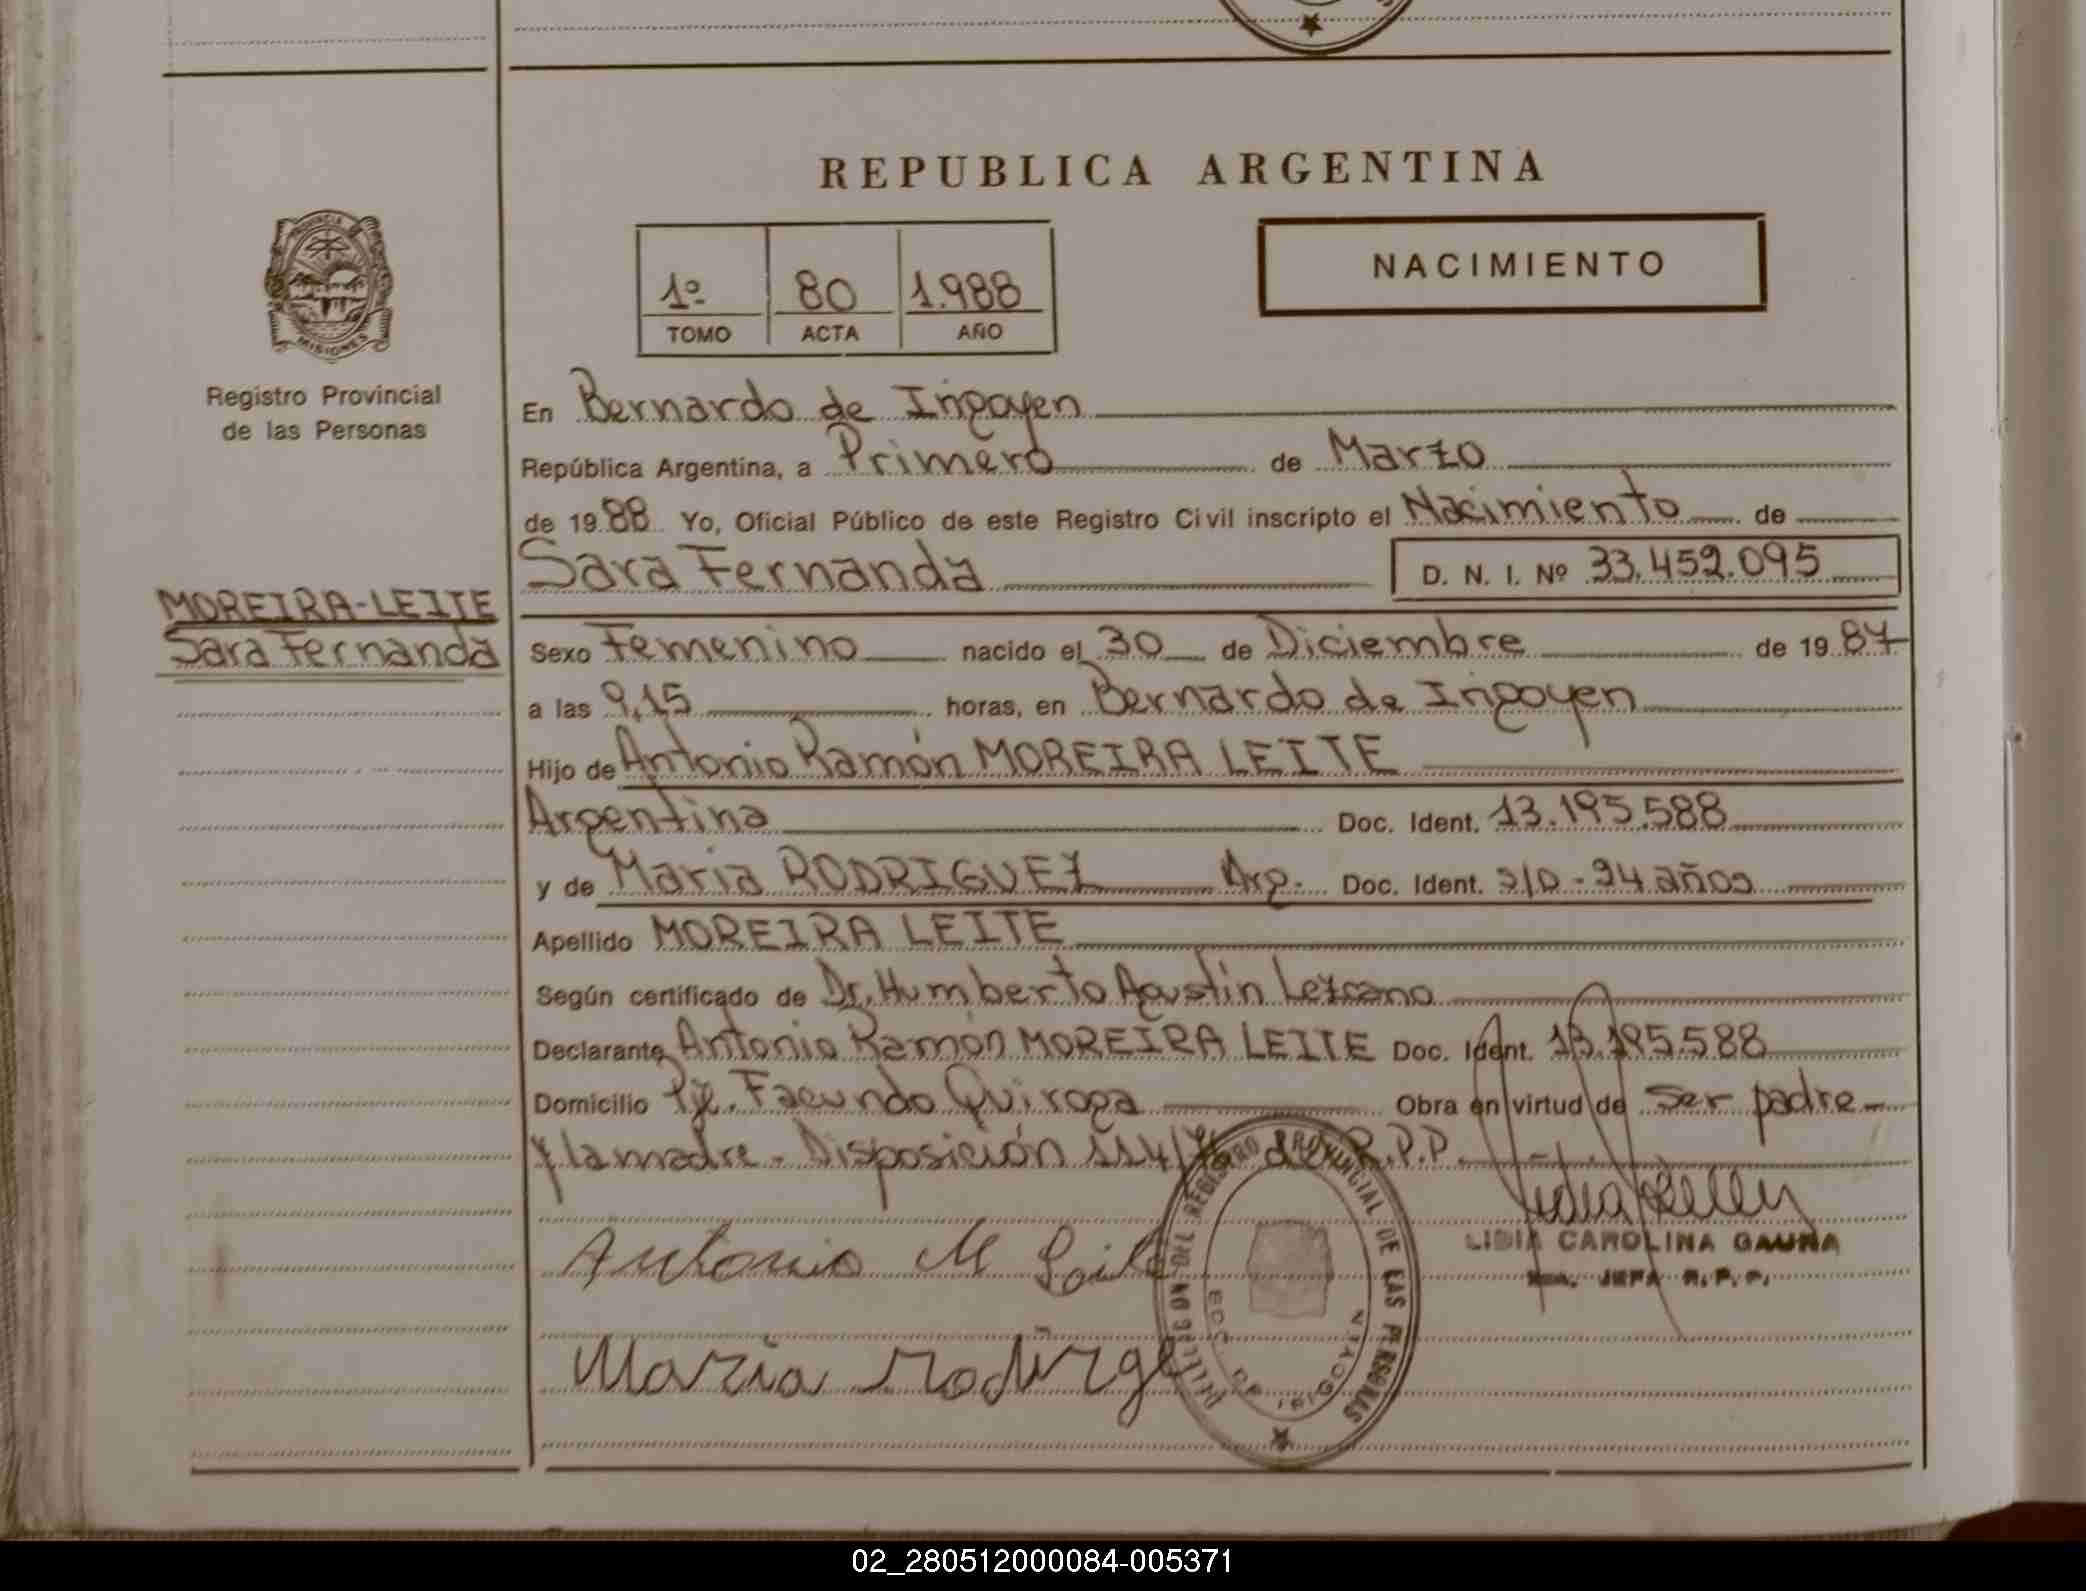 REPUBLICA ARGENTINA
PROVINCIA
MISIONES
Registro Provincial
de las Personas
1º 80 1.988
TOMO ACTA AÑO
NACIMIENTO
En Bernardo de Irigoyen
República Argentina, a Primero de Marzo
de 1988 Yo, Oficial Público de este Registro Civil inscripto el Nacimiento de
Sara Fernanda D. N. I. Nº 33.452.095
MOREIRA-LEITE
Sara Fernanda
Sexo Femenino nacido el 30 de Diciembre de 1987
a las 9,15 horas, en Bernardo de Irigoyen
Hijo de Antonio Ramón MOREIRA LEITE
Argentina Doc. Ident. 13.195.588
y de Maria RODRIGUEZ Arg. Doc. Ident. S/D - 24 años
Apellido MOREIRA LEITE
Según certificado de Dr. Humberto Agustin Lezcano
Declarante Antonio Ramón MOREIRA LEITE Doc. Ident. 13.195.588
Domicilio Pje. Facundo Quiroga Obra en virtud de ser padre
y la madre - Disposición 114/ de R.P.P.
Antonio M Leite
Maria rodirge
DELEGACION DEL REGISTRO PROVINCIAL DE LAS PERSONAS
BDO. DE IRIGOYEN
LIDIA CAROLINA GAUNA
JEFA R.P.P.
02_280512000084-005371